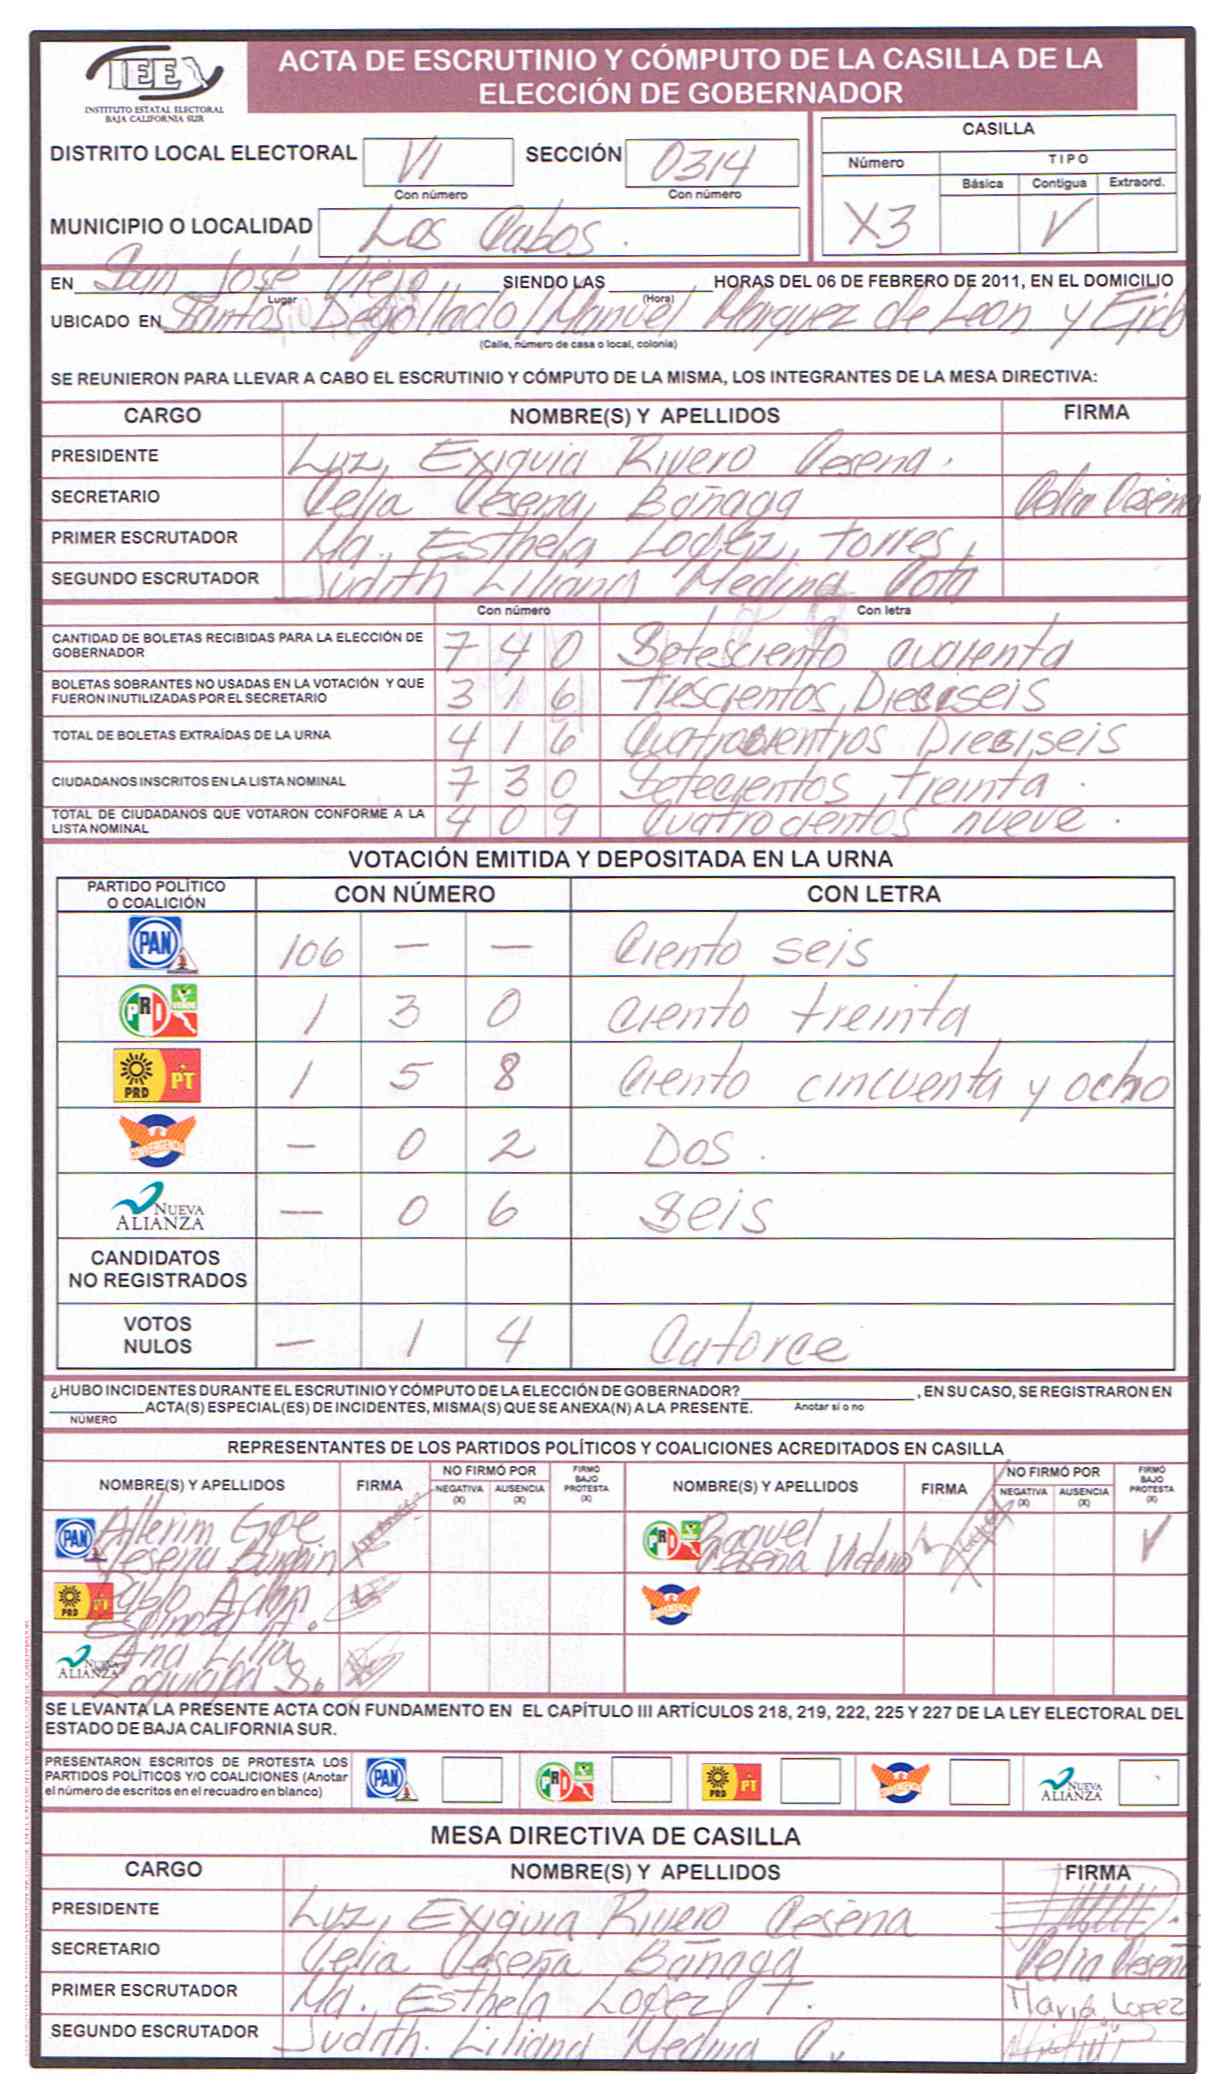 IEE
INSTITUTO ESTATAL ELECTORAL
BAJA CALIFORNIA SUR
ACTA DE ESCRUTINIO Y CÓMPUTO DE LA CASILLA DE LA
ELECCIÓN DE GOBERNADOR
DISTRITO LOCAL ELECTORAL VI SECCIÓN 0314
Con número Con número
MUNICIPIO O LOCALIDAD Los Cabos.
CASILLA
Número TIPO
Básica Contigua Extraord.
X3 √
EN San José Viejo, SIENDO LAS HORAS DEL 06 DE FEBRERO DE 2011, EN EL DOMICILIO
Lugar (Hora)
UBICADO EN Santos Degollado / Manuel Marquez de Leon y
(Calle, número de casa o local, colonia)
SE REUNIERON PARA LLEVAR A CABO EL ESCRUTINIO Y CÓMPUTO DE LA MISMA, LOS INTEGRANTES DE LA MESA DIRECTIVA:
CARGO NOMBRE(S) Y APELLIDOS FIRMA
PRESIDENTE Luz, Exiquia Rivero Cesena.
SECRETARIO Celia Cesena, Bañaga Celia Ceseña
PRIMER ESCRUTADOR Ma., Esthela Lopez, torres,
SEGUNDO ESCRUTADOR Judith Liliana Medina Cota
Con número Con letra
CANTIDAD DE BOLETAS RECIBIDAS PARA LA ELECCIÓN DE
GOBERNADOR 7 4 0 Setesciento cuarenta
BOLETAS SOBRANTES NO USADAS EN LA VOTACIÓN Y QUE
FUERON INUTILIZADAS POR EL SECRETARIO 3 1 6 Trescientos, Dieciseis
TOTAL DE BOLETAS EXTRAÍDAS DE LA URNA 4 1 6 Cuatrocientros Dieciseis
CIUDADANOS INSCRITOS EN LA LISTA NOMINAL 7 3 0 Setecientos, treinta.
TOTAL DE CIUDADANOS QUE VOTARON CONFORME A LA
LISTA NOMINAL 4 0 9 Cuatrocientos nueve.
VOTACIÓN EMITIDA Y DEPOSITADA EN LA URNA
PARTIDO POLÍTICO
O COALICIÓN CON NÚMERO CON LETRA
PAN 106 — — Ciento seis
PRI 1 3 0 Ciento treinta
PRD PT 1 5 8 Ciento cincuenta y ocho
CONVERGENCIA — 0 2 Dos.
NUEVA ALIANZA — 0 6 Seis
CANDIDATOS
NO REGISTRADOS
VOTOS
NULOS — 1 4 Catorce
¿HUBO INCIDENTES DURANTE EL ESCRUTINIO Y CÓMPUTO DE LA ELECCIÓN DE GOBERNADOR? , EN SU CASO, SE REGISTRARON EN
ACTA(S) ESPECIAL(ES) DE INCIDENTES, MISMA(S) QUE SE ANEXA(N) A LA PRESENTE. Anotar sí o no
NÚMERO
REPRESENTANTES DE LOS PARTIDOS POLÍTICOS Y COALICIONES ACREDITADOS EN CASILLA
NOMBRE(S) Y APELLIDOS FIRMA NO FIRMÓ POR NEGATIVA (X) AUSENCIA (X) FIRMÓ BAJO PROTESTA (X) NOMBRE(S) Y APELLIDOS FIRMA NO FIRMÓ POR NEGATIVA (X) AUSENCIA (X) FIRMÓ BAJO PROTESTA (X)
PAN PRI Raquel
Ceseña √
PRD PT CONVERGENCIA
NUEVA ALIANZA Ana Lilia
SE LEVANTA LA PRESENTE ACTA CON FUNDAMENTO EN EL CAPÍTULO III ARTÍCULOS 218, 219, 222, 225 Y 227 DE LA LEY ELECTORAL DEL
ESTADO DE BAJA CALIFORNIA SUR.
PRESENTARON ESCRITOS DE PROTESTA LOS
PARTIDOS POLÍTICOS Y/O COALICIONES (Anotar
el número de escritos en el recuadro en blanco) PAN PRI PRD PT CONVERGENCIA NUEVA ALIANZA
MESA DIRECTIVA DE CASILLA
CARGO NOMBRE(S) Y APELLIDOS FIRMA
PRESIDENTE Luz, Exiquia Rivero Cesena
SECRETARIO Celia Ceseña Bañaga Celia Ceseña
PRIMER ESCRUTADOR Ma., Esthela Lopez, T. Maria Lopez
SEGUNDO ESCRUTADOR Judith. Liliana Medina C.